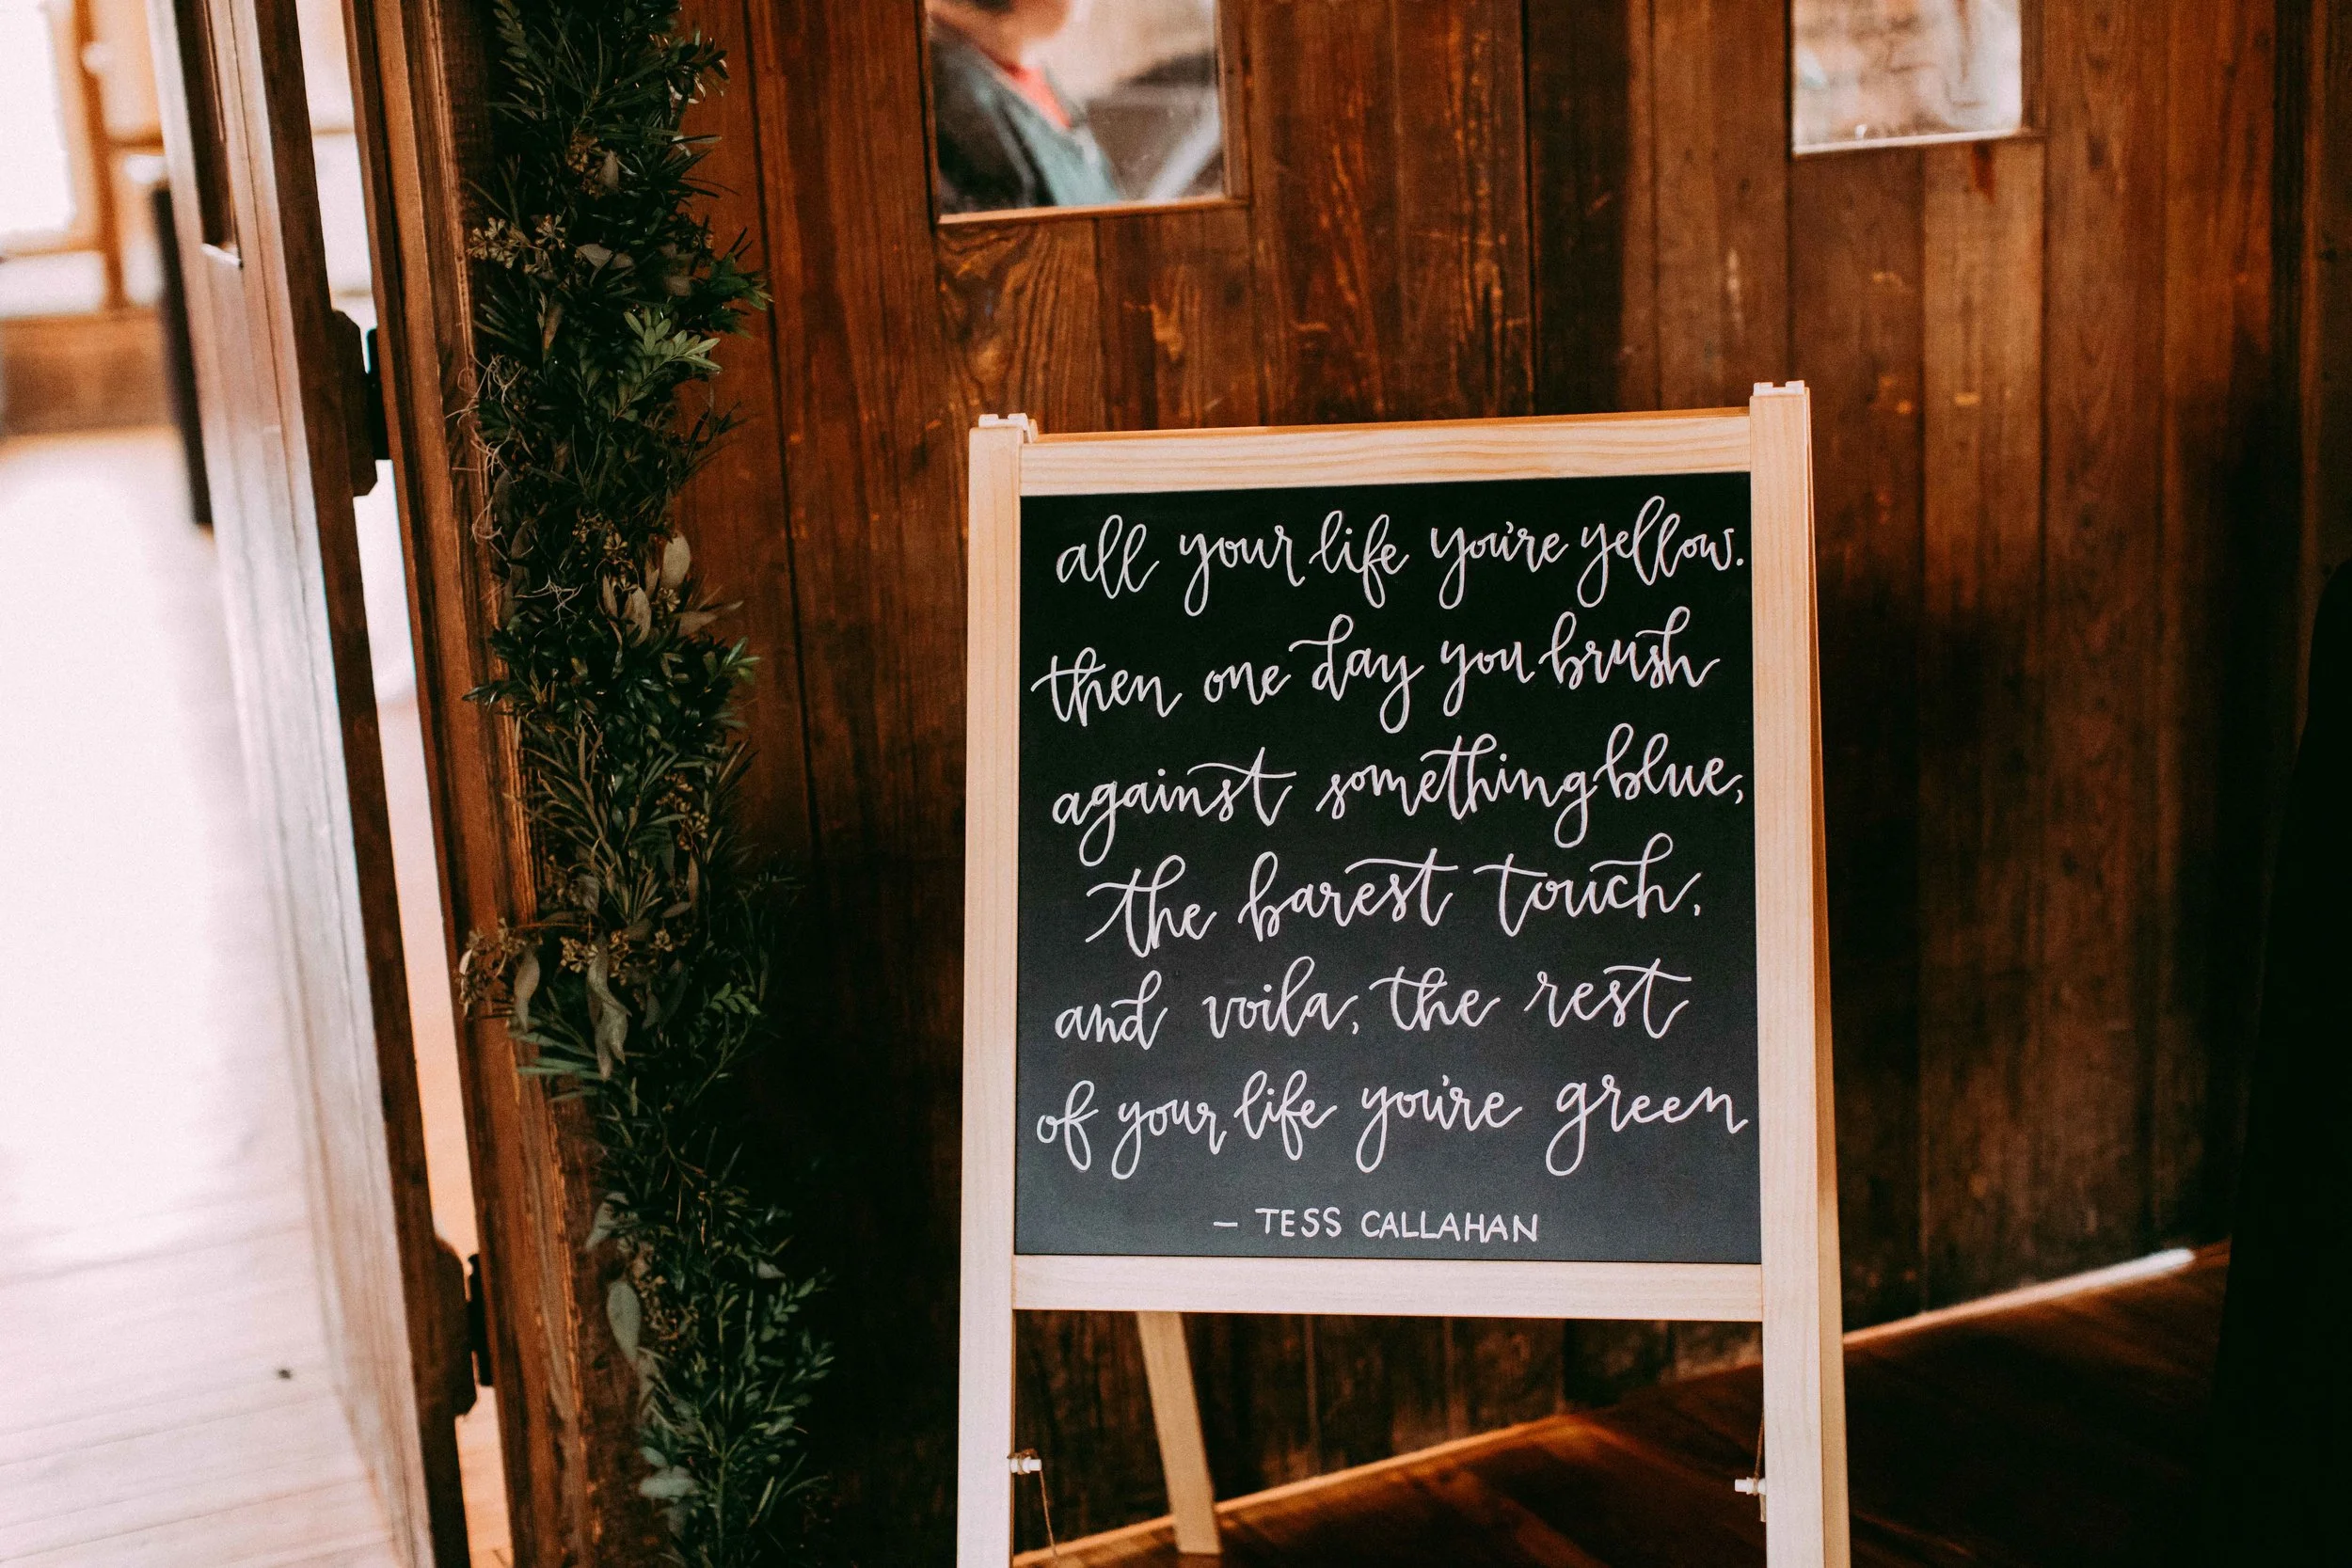 all your life you're yellow.
then one day you brush
against something blue,
the barest touch,
and voila, the rest
of your life you're green
- TESS CALLAHAN